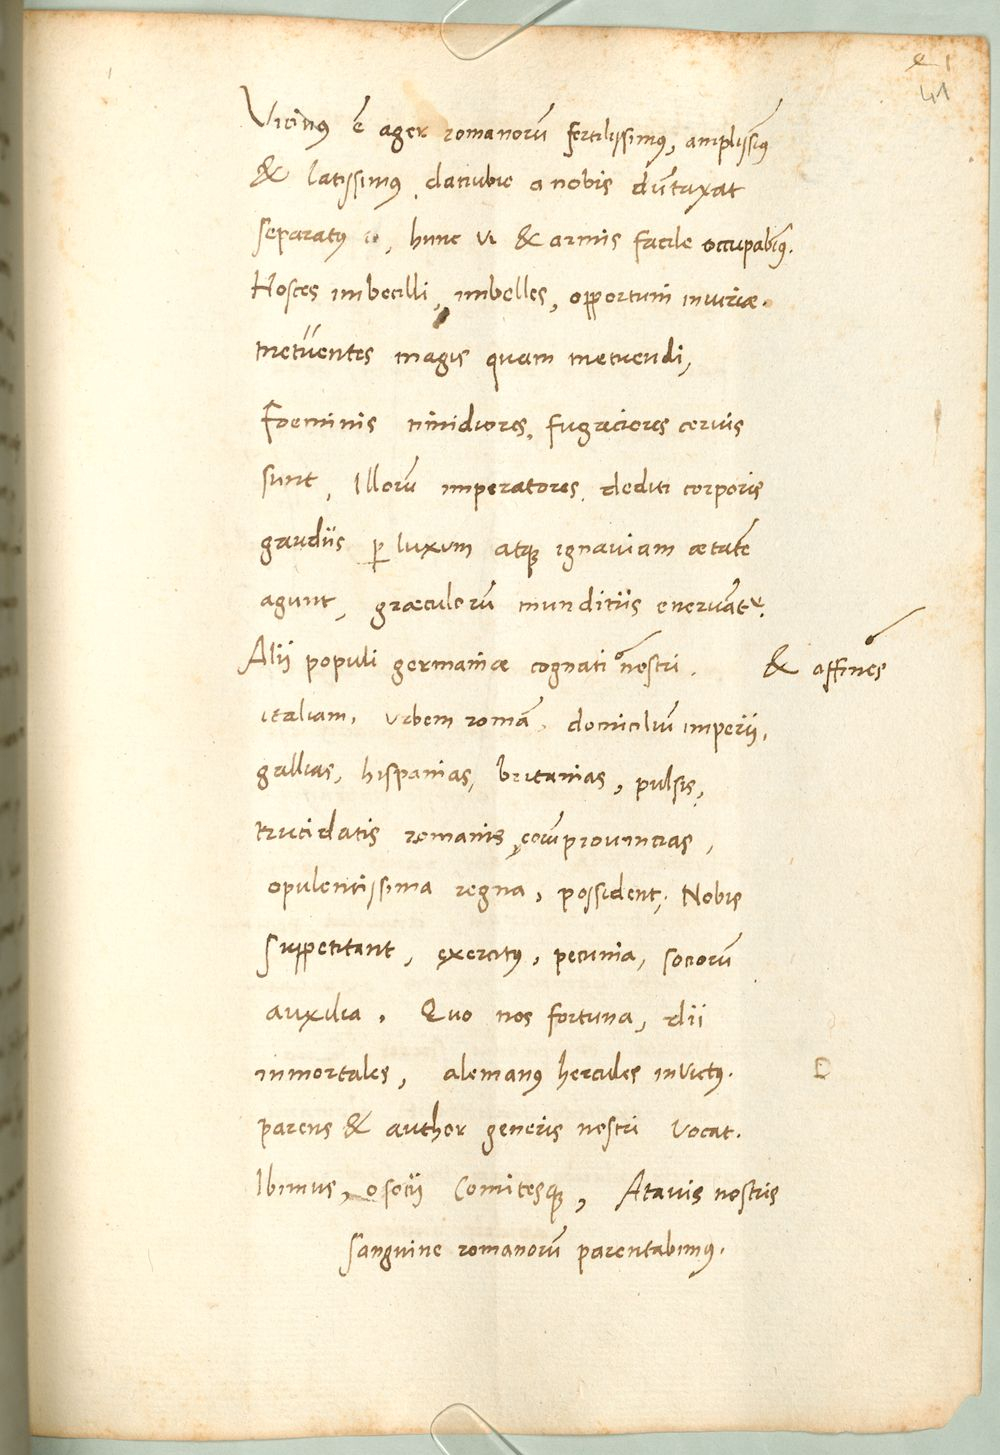 e 1
41
Vicinus ē ager romanorū fertilissimus, amplissīus
& latissimus danubio a nobis dūtaxat
separatus, hunc vi & armis facile occupabīus.
Hostes imbecilli, imbelles, opportuni iniuriæ.
metuentes magis quam metuendi,
Foeminis timidiores, fugaciores cervis
sunt, Illorū imperatores dediti corporis
gaudiis per luxum atque ignaviam ætatē
agunt, græculorū munditiis enervant.
Alii populi germaniæ cognati nostri. & affines
italiam, urbem romā, domicilīū imperii,
gallias, hispanias, britanias, pulsis,
trucidatis romanis, eorū provincias,
opulentissima regna, possident, Nobis
suppetitant, exercitus, pecunia, sociorū
auxilia. Quo nos fortuna, dii
inmortales, alemanus hercules invictus.
parens & author generis nostri vocat.
Ibimus, o socii Comitesque, Atavis nostris
sanguine romanorū parentabimus.